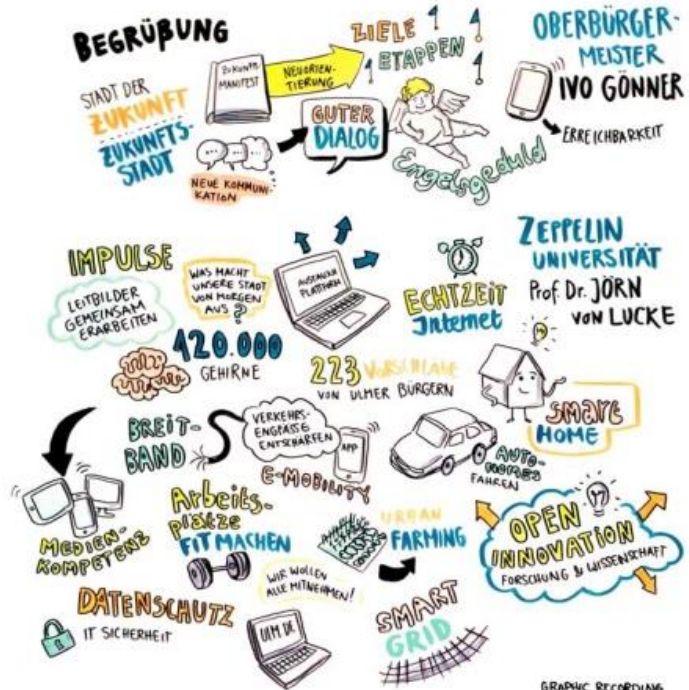 BEGRÜßUNG
STADT DER
ZUKUNFT
ZUKUNFTS-
STADT
ZUKUNFTS
MANIFEST
NEUORIEN-
TIERUNG
ZIELE
ETAPPEN
GUTER
DIALOG
NEUE KOMMUNI-
KATION
Engelsgeduld
OBERBÜRGER-
MEISTER
IVO GÖNNER
ERREICHBARKEIT
IMPULSE
LEITBILDER
GEMEINSAM
ERARBEITEN
WAS MACHT
UNSERE STADT
VON MORGEN
AUS?
120.000
GEHIRNE
AUSTAUSCH
PLATTFORM
ECHTZEIT
Internet
ZEPPELIN
UNIVERSITÄT
Prof. Dr. JÖRN
VON LUCKE
223 VORSCHLÄGE
VON ULMER BÜRGERN
SMART
HOME
BREIT-
BAND
VERKEHRS-
ENGPÄSSE
ENTSCHÄRFEN
APP
E-MOBILITY
AUTO-
NOMES
FAHREN
MEDIEN-
KOMPETENZ
Arbeits-
plätze
FIT MACHEN
WIR WOLLEN
ALLE MITNEHMEN!
URBAN
FARMING
OPEN
INNOVATION
FORSCHUNG & WISSENSCHAFT
DATENSCHUTZ
IT SICHERHEIT
ULM.DE
SMART
GRID
GRAPHIC RECORDING